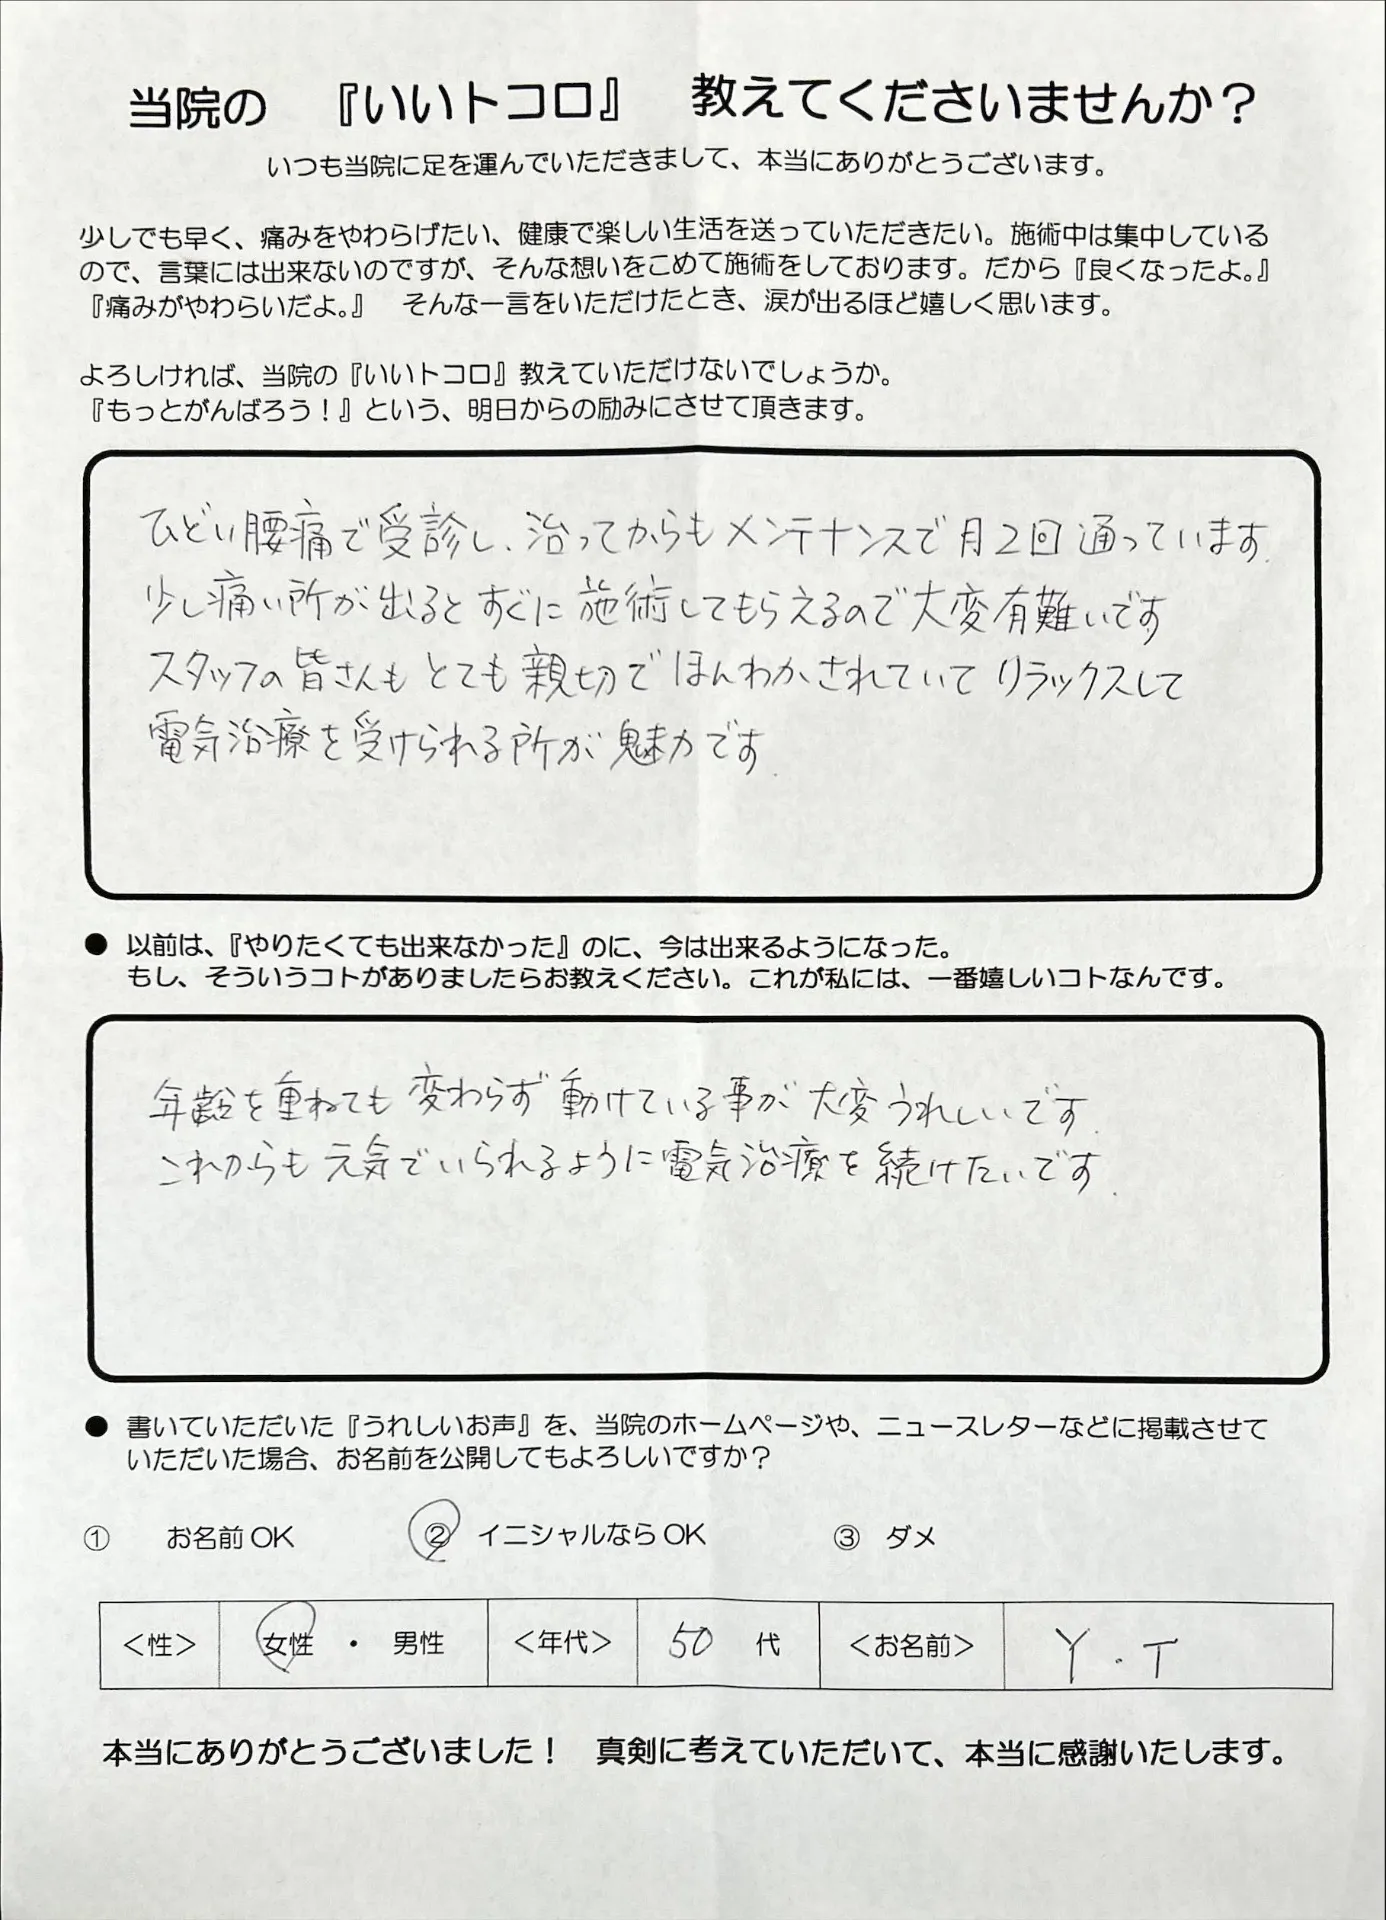 当院の　『いいトコロ』　教えてくださいませんか？
いつも当院に足を運んでいただきまして、本当にありがとうございます。
少しでも早く、痛みをやわらげたい、健康で楽しい生活を送っていただきたい。施術中は集中している
ので、言葉には出来ないのですが、そんな想いをこめて施術をしております。だから『良くなったよ。』
『痛みがやわらいだよ。』　そんな一言をいただけたとき、涙が出るほど嬉しく思います。
よろしければ、当院の『いいトコロ』教えていただけないでしょうか。
『もっとがんばろう！』という、明日からの励みにさせて頂きます。
ひどい腰痛で受診し、治ってからもメンテナンスで月2回通っています。
少し痛い所が出るとすぐに施術してもらえるので大変有難いです
スタッフの皆さんもとても親切でほんわかされていてリラックスして
電気治療を受けられる所が魅力です。
● 以前は、『やりたくても出来なかった』のに、今は出来るようになった。
もし、そういうコトがありましたらお教えください。これが私には、一番嬉しいコトなんです。
年齢を重ねても変わらず動けている事が大変うれしいです。
これからも元気でいられるように電気治療を続けたいです。
● 書いていただいた『うれしいお声』を、当院のホームページや、ニュースレターなどに掲載させて
いただいた場合、お名前を公開してもよろしいですか？
①　お名前OK　②　イニシャルならOK　③　ダメ
＜性＞　女性　・　男性　＜年代＞　50　代　＜お名前＞　Y．T
本当にありがとうございました！　真剣に考えていただいて、本当に感謝いたします。